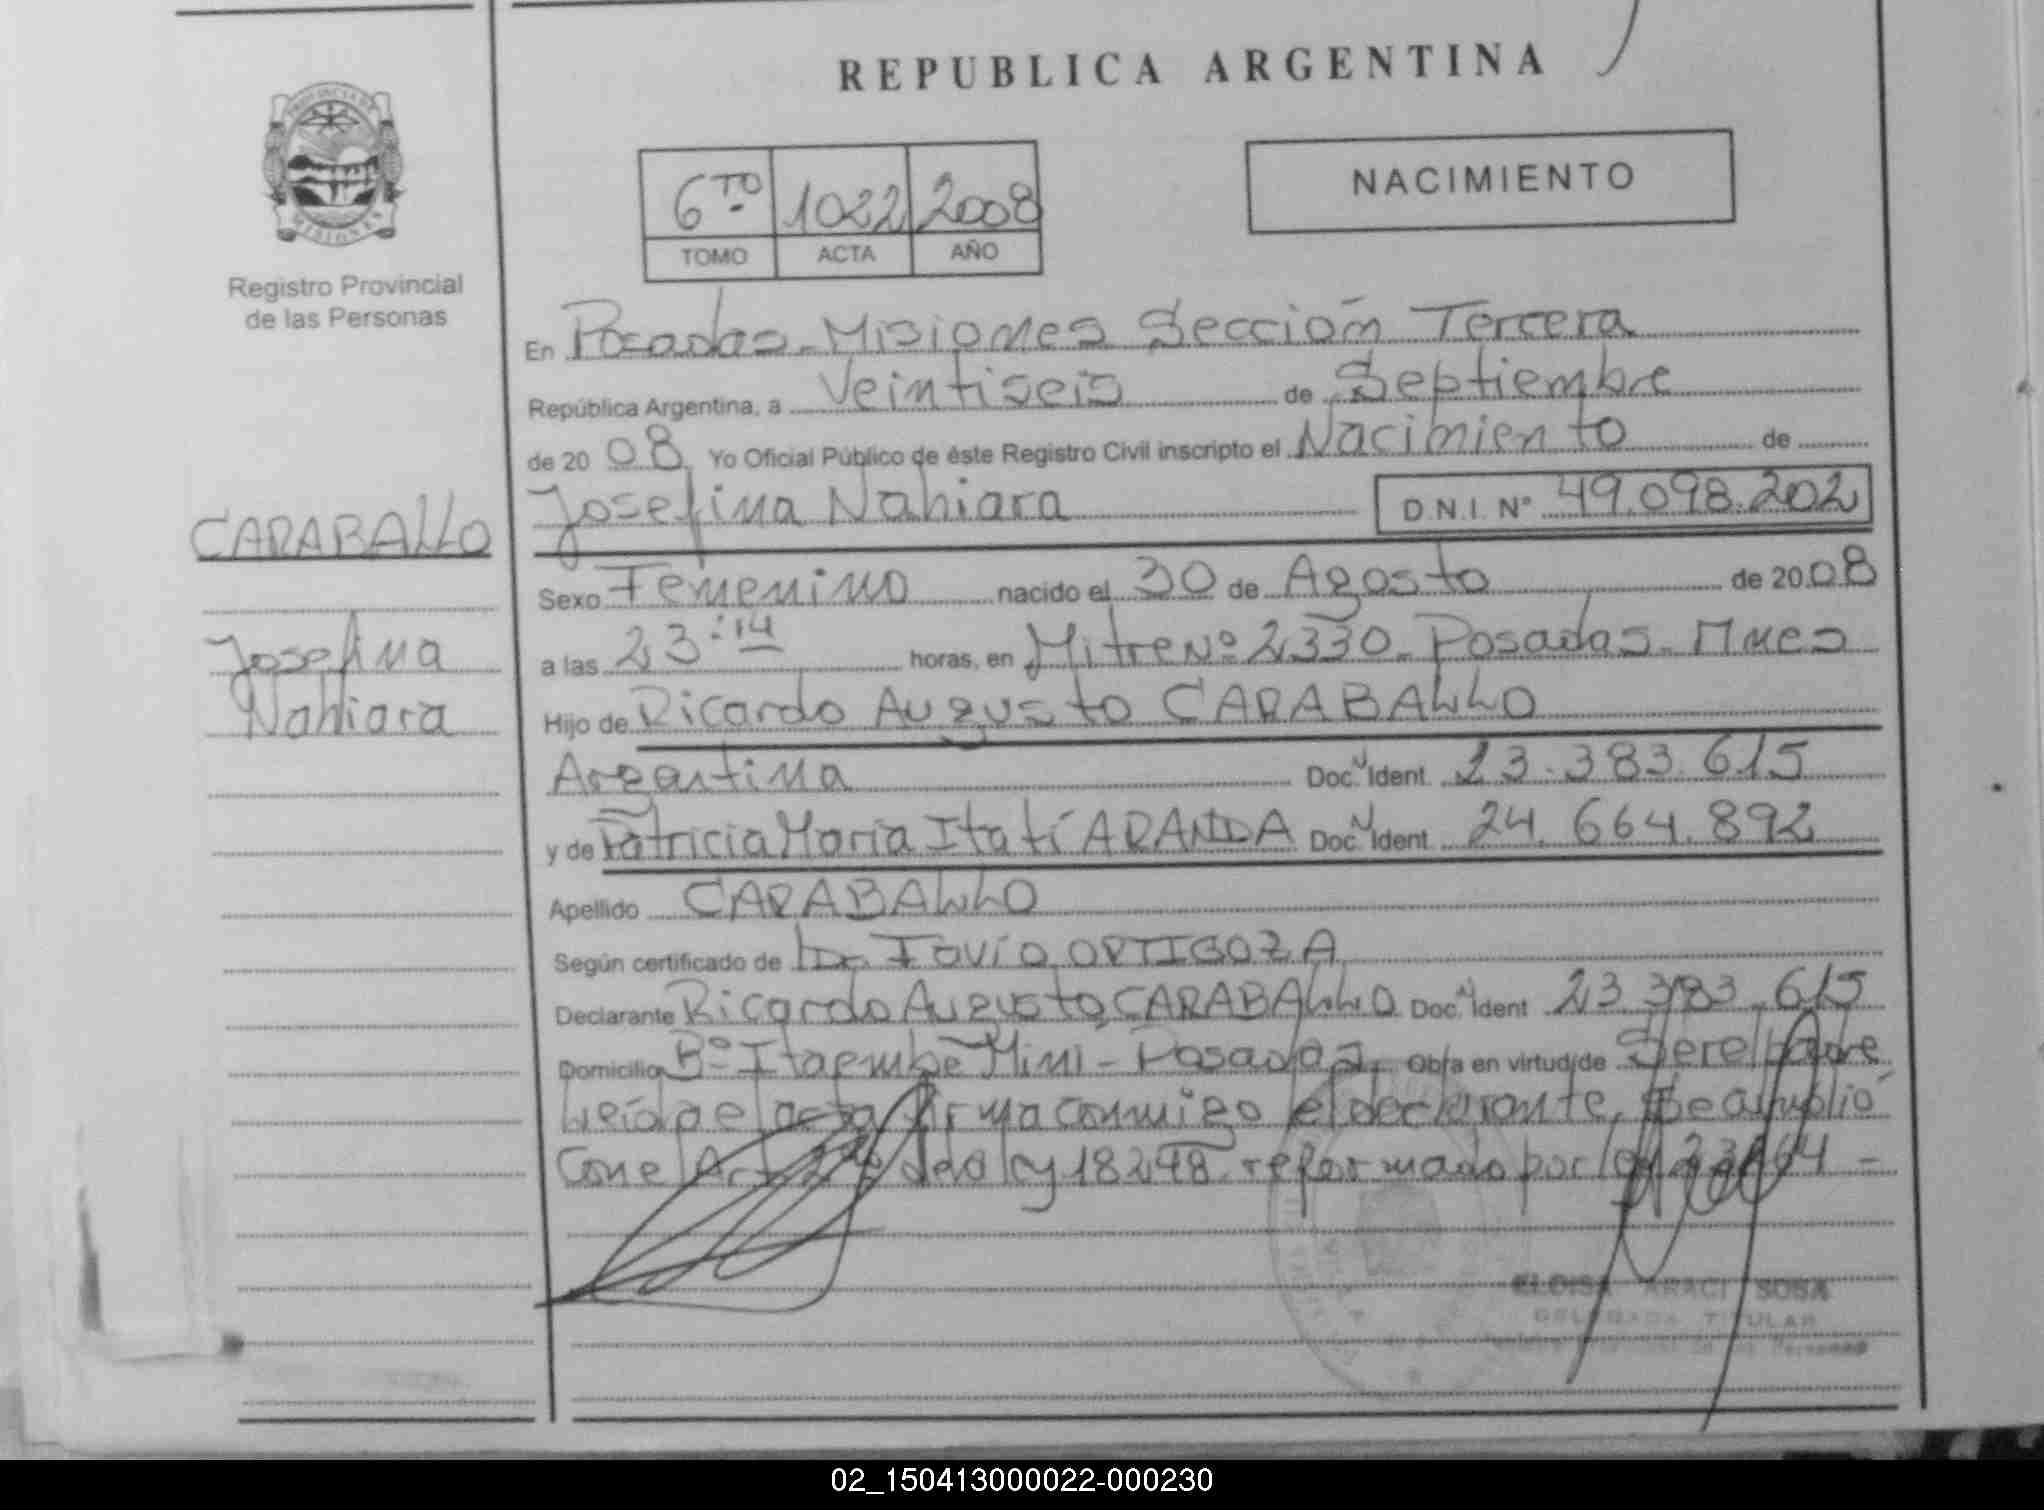 REPUBLICA ARGENTINA
PROVINCIA DE
MISIONES
Registro Provincial
de las Personas
6TO 1022 2008
TOMO ACTA AÑO
NACIMIENTO
En Posadas - Misiones Sección Tercera
República Argentina, a Veintiseis de Septiembre
de 20 08 Yo Oficial Público de éste Registro Civil inscripto el Nacimiento de
CARABALLO
Josefina Nahiara D.N.I. Nº 49.098.202
Sexo Femenino nacido el 30 de Agosto de 20 08
Josefina
Nahiara
a las 23:14 horas, en Mitre Nº 2330 - Posadas - Mnes
Hijo de Ricardo Augusto CARABALLO
Argentina Doc. Ident. 23.383.615
y de Patricia María Itatí ARANDA Doc. Ident. 24.664.892
Apellido CARABALLO
Según certificado de Dr. ORTIGOZA
Declarante Ricardo Augusto CARABALLO Doc. Ident 23.383.615
Domicilio Bº Itaembé Mini - Posadas. Obra en virtud de Ser el padre
Leída el acta firma conmigo el declarante, Se amplió
Con el Art de la ley 18248 reformado por ley 23264 -
ELOISA ARACI SOSA
DELEGADA TITULAR
02_150413000022-000230